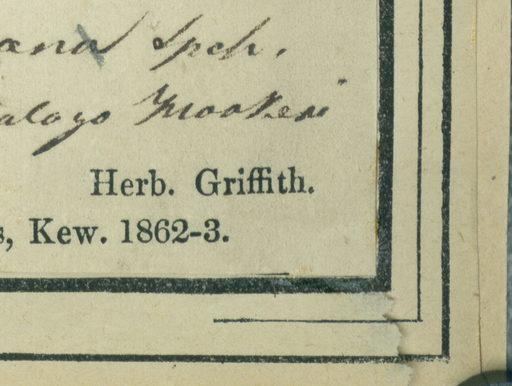 ana Spch.
alogo Hookeri
Herb. Griffith.
s, Kew. 1862-3.